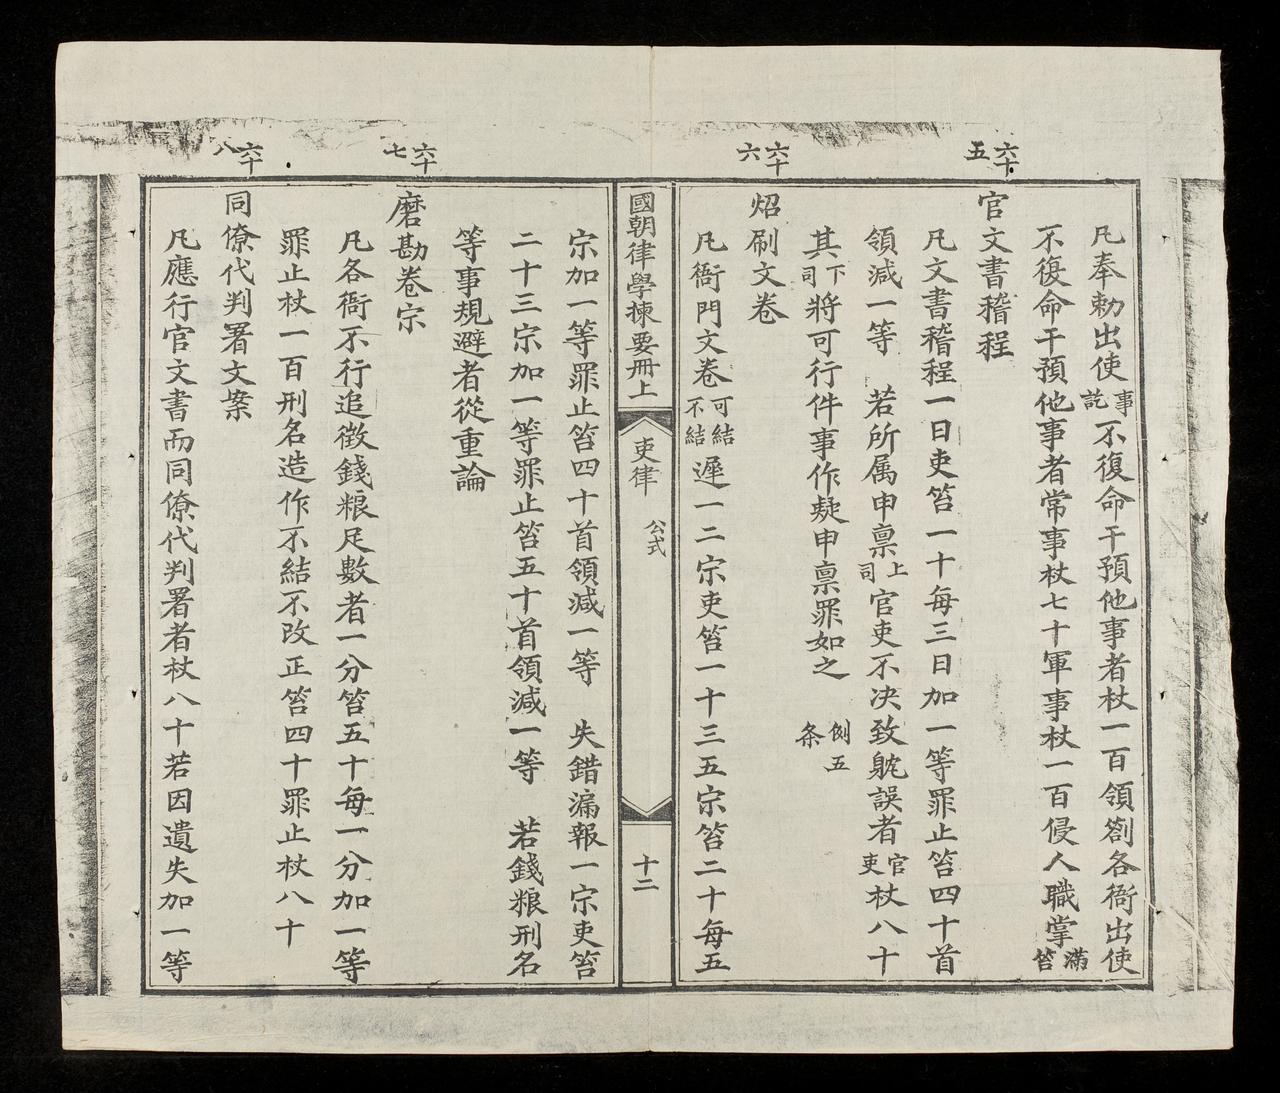 六十五
六十六
凡奉勅出使事訖不復命干預他事者杖一百領劄各衙出使
不復命干預他事者常事杖七十軍事杖一百侵人職掌滿笞
官文書稽程
凡文書稽程一日吏笞一十每三日加一等罪止笞四十首
領減一等　若所属申禀上司官吏不決致躭誤者官吏杖八十
其下司將可行件事作疑申禀罪如之　例五条
炤刷文卷
凡衙門文卷可結不結遲一二宗吏笞一十三五宗笞二十每五
國朝律學揀要冊上
吏律
公式
十二
六十七
六十八
宗加一等罪止笞四十首領減一等　失錯漏報一宗吏笞
二十三宗加一等罪止笞五十首領減一等　若錢粮刑名
等事規避者從重論
磨勘卷宗
凡各衙不行追徵錢粮足數者一分笞五十每一分加一等
罪止杖一百刑名造作不結不改正笞四十罪止杖八十
同僚代判署文案
凡應行官文書而同僚代判署者杖八十若因遺失加一等